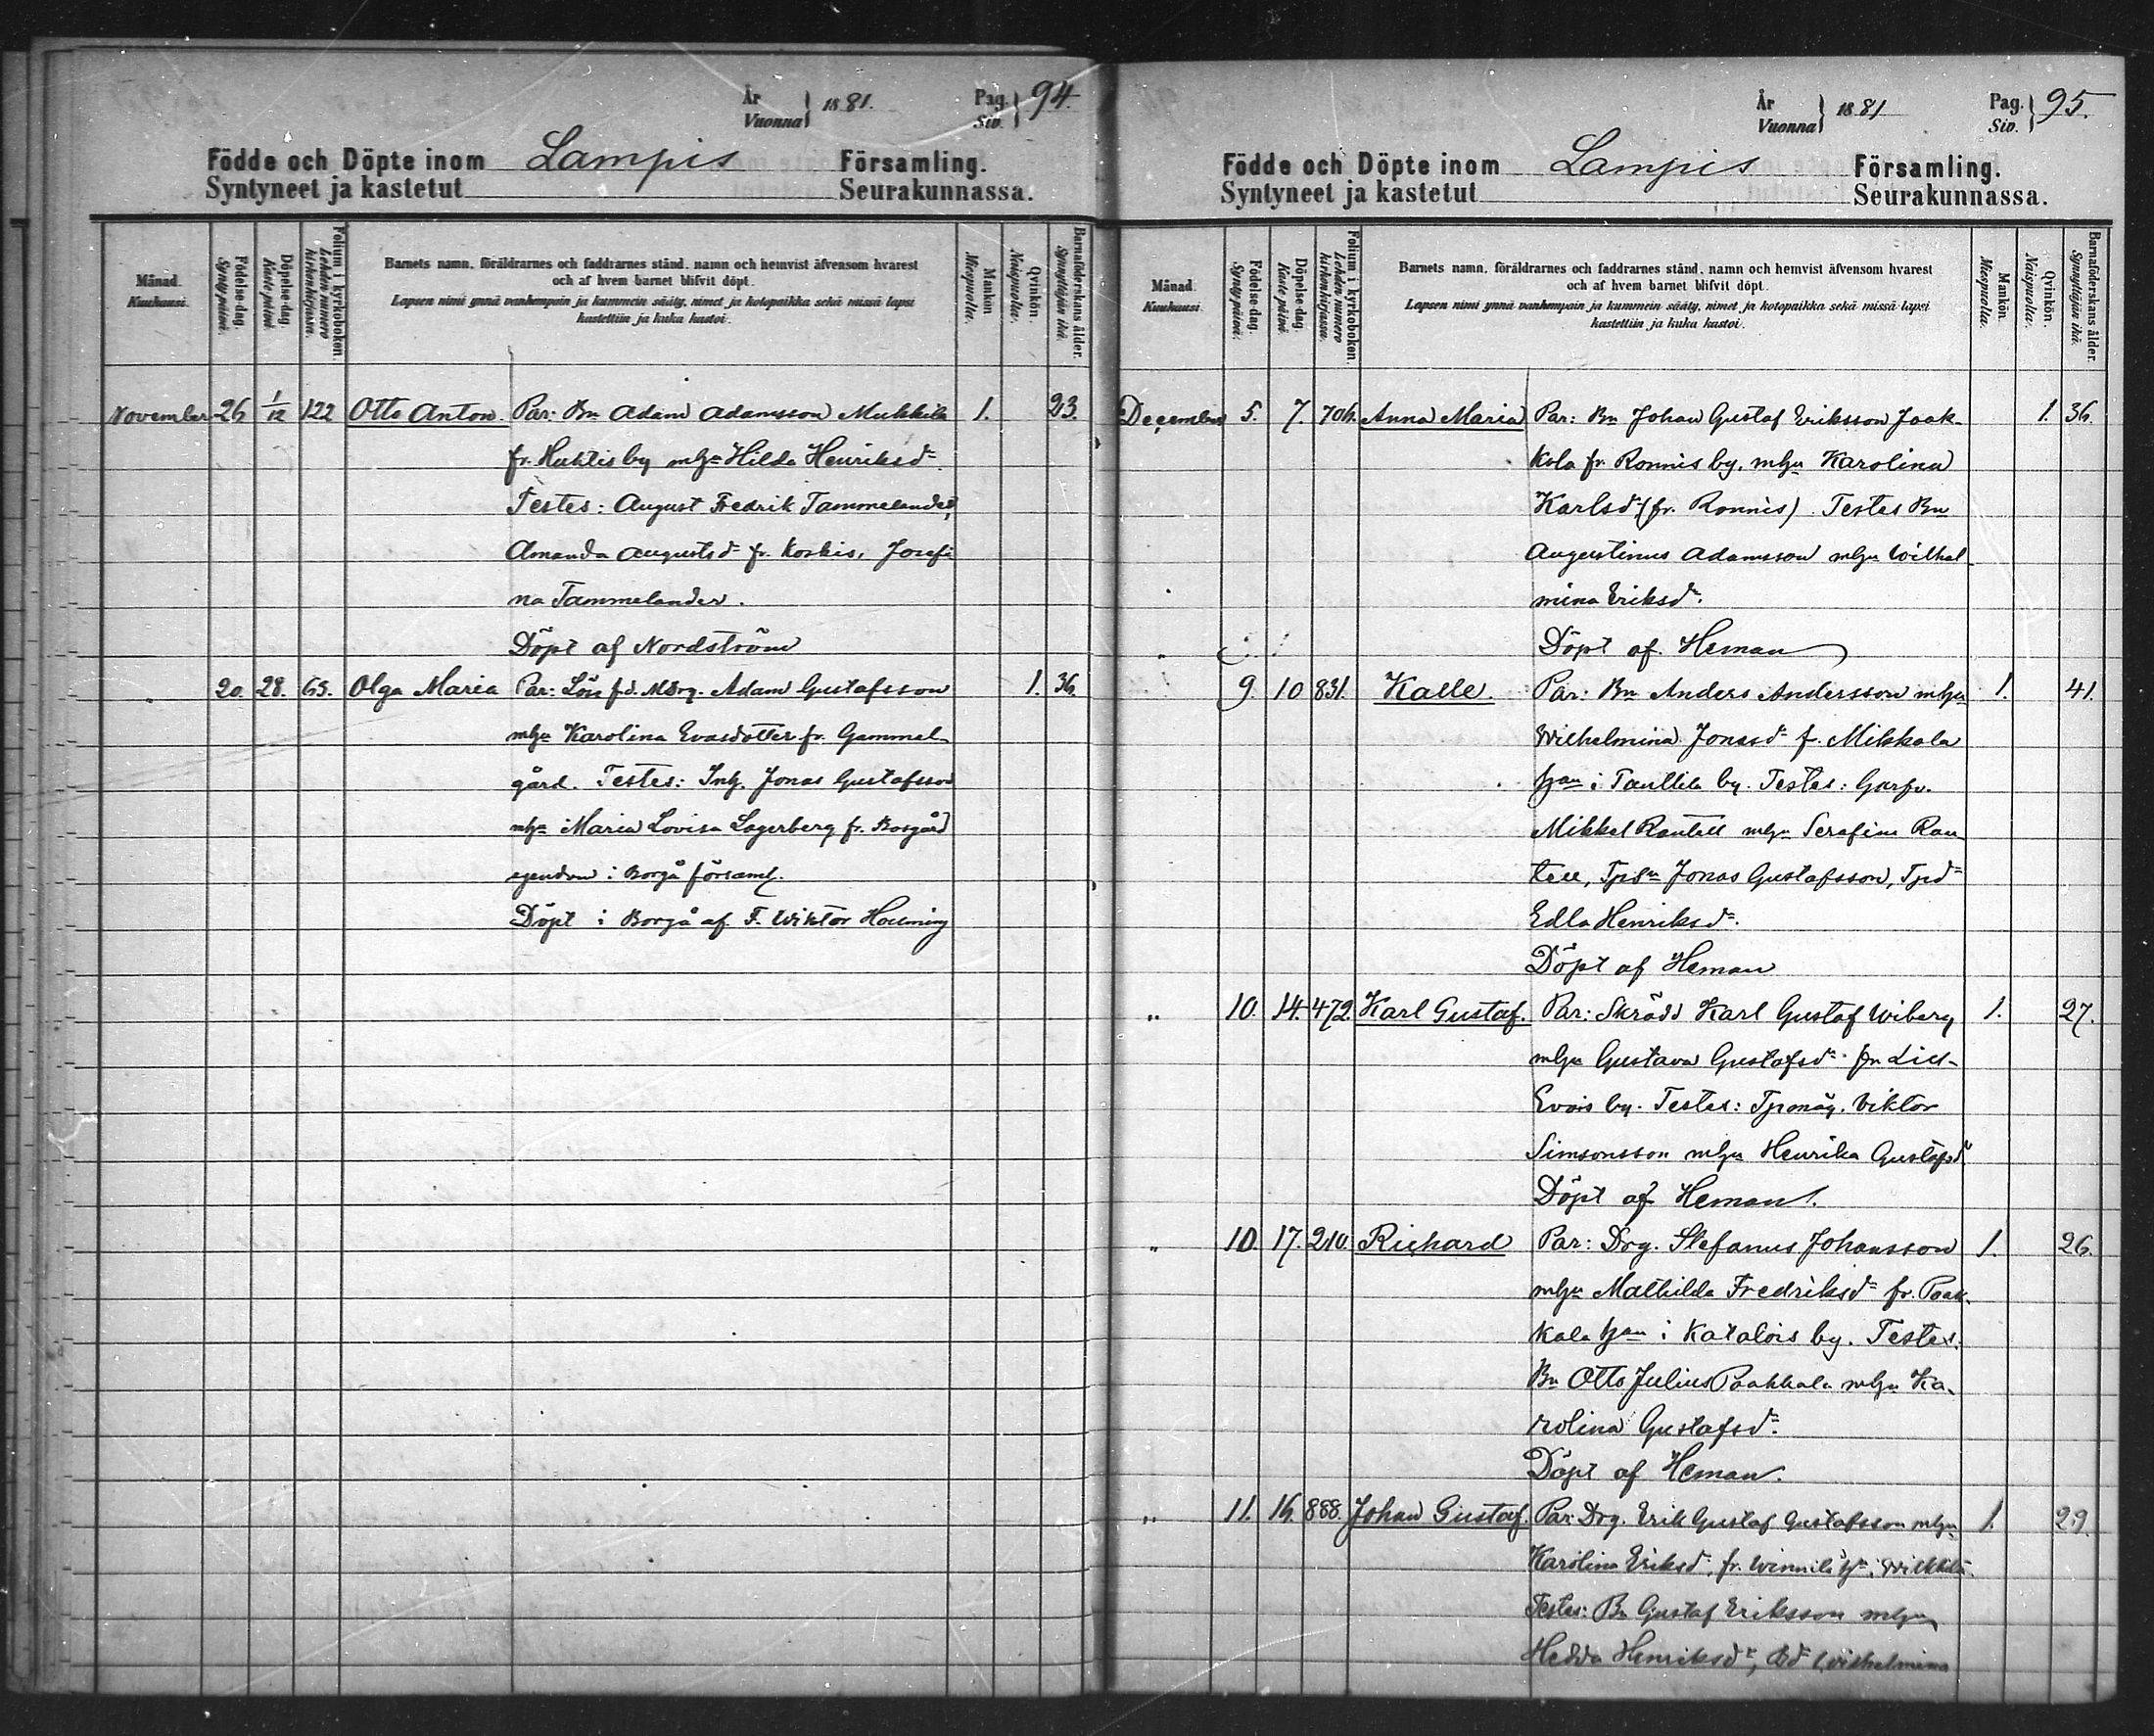 År
Vuonna
1881.
Pag.
Siv.
94.
Födde och Döpte inom Lampis Församling.
Syntyneet ja kastetut Seurakunnassa.
Månad. Kuukausi.
Födelse-dag. Syntypäivä.
Döpelse-dag. Kastepäivä.
Folium i kyrkoboken. Lehden numero kirkonkirjassa.
Barnets namn, föräldrarnes och faddrarnes stånd, namn och hemvist äfvensom hvarest
och af hvem barnet blifvit döpt.
Lapsen nimi ynnä vanhempain ja kummein sääty, nimet ja kotopaikka sekä missä lapsi
kastettiin ja kuka kastoi.
Mankön. Miespuolia.
Qvinkön. Naispuolia.
Barnaföderskans ålder. Synnyttäjän ikä.
November 26 1/12 122 Otto Anton. Par: Bn Adam Adamsson Mukkila 1. 23.
fr. Huktis by mhu Hilda Henriksdr.
Testes: August Fredrik Tammelander,
Amanda Augustsdr fr. Koskis, Josefi
na Tammelander.
Döpt af Nordström
" 20. 28. 63. Olga Maria Par: Lös fd. Mdrg. Adam Gustafsson 1. 36.
mhu Karolina Evasdotter fr. Gammel
gård. Testes: Inh. Jonas Gustafsson
mhu Maria Lovisa Lagerberg fr. Bosgård
egendom i Borgå församl.
Döpt i Borgå af F. Wiktor Hollming
År
Vuonna
1881
Pag.
Siv.
95.
Födde och Döpte inom Lampis Församling.
Syntyneet ja kastetut Seurakunnassa.
Månad. Kuukausi.
Födelse-dag. Syntypäivä.
Döpelse-dag. Kastepäivä.
Folium i kyrkoboken. Lehden numero kirkonkirjassa.
Barnets namn, föräldrarnes och faddrarnes stånd, namn och hemvist äfvensom hvarest
och af hvem barnet blifvit döpt.
Lapsen nimi ynnä vanhempain ja kummein sääty, nimet ja kotopaikka sekä missä lapsi
kastettiin ja kuka kastoi.
Mankön. Miespuolia.
Qvinkön. Naispuolia.
Barnaföderskans ålder. Synnyttäjän ikä.
December 5. 7. 706. Anna Maria Par: Bn Johan Gustaf Eriksson Jaak- 1. 36.
kola fr Ronnis by, mhu Karolina
Karlsdr (fr. Ronnis). Testes Bn
Augustinus Adamsson mhu Wilhel
mina Eriksdr.
Döpt af Heman
9. 10 831. Kalle. Par: Bn Anders Andersson mhu 1. 41.
Wilhelmina Jonasdr f. Mikkola
hn i Taullila by. Testes: Garfv.
Mikkel Rantell mhu Serafina Ran
tell, Tpsn Jonas Gustafsson, Tpdr
Edla Henriksdr.
Döpt af Heman
" 10. 14. 472. Karl Gustaf. Par: Skrädd Karl Gustaf Wiberg 1. 27.
mhu Gustava Gustafsdr fn Lill-
Evois by. Testes: Tpmåg. Viktor
Simsonsson mhu Henrika Gustafsdr
Döpt af Heman.
" 10. 17. 210. Richard Par: Drg. Stefanus Johansson 1. 26.
mhu Mathilda Fredriksdr fr. Paak-
kala hn i Katalois by. Testes.
Bn Otto Julius Paakkala mhu Ka-
rolina Gustafsdr.
Döpt af Heman.
" 11. 16. 888. Johan Gustaf. Par: Drg. Erik Gustaf Gustafsson mhu 1. 29.
Karolina Eriksdr, fr. Winnilä hn i
Testes: Bn Gustaf Eriksson mhu
Hedda Henriksdr, Bdr Wilhelmina